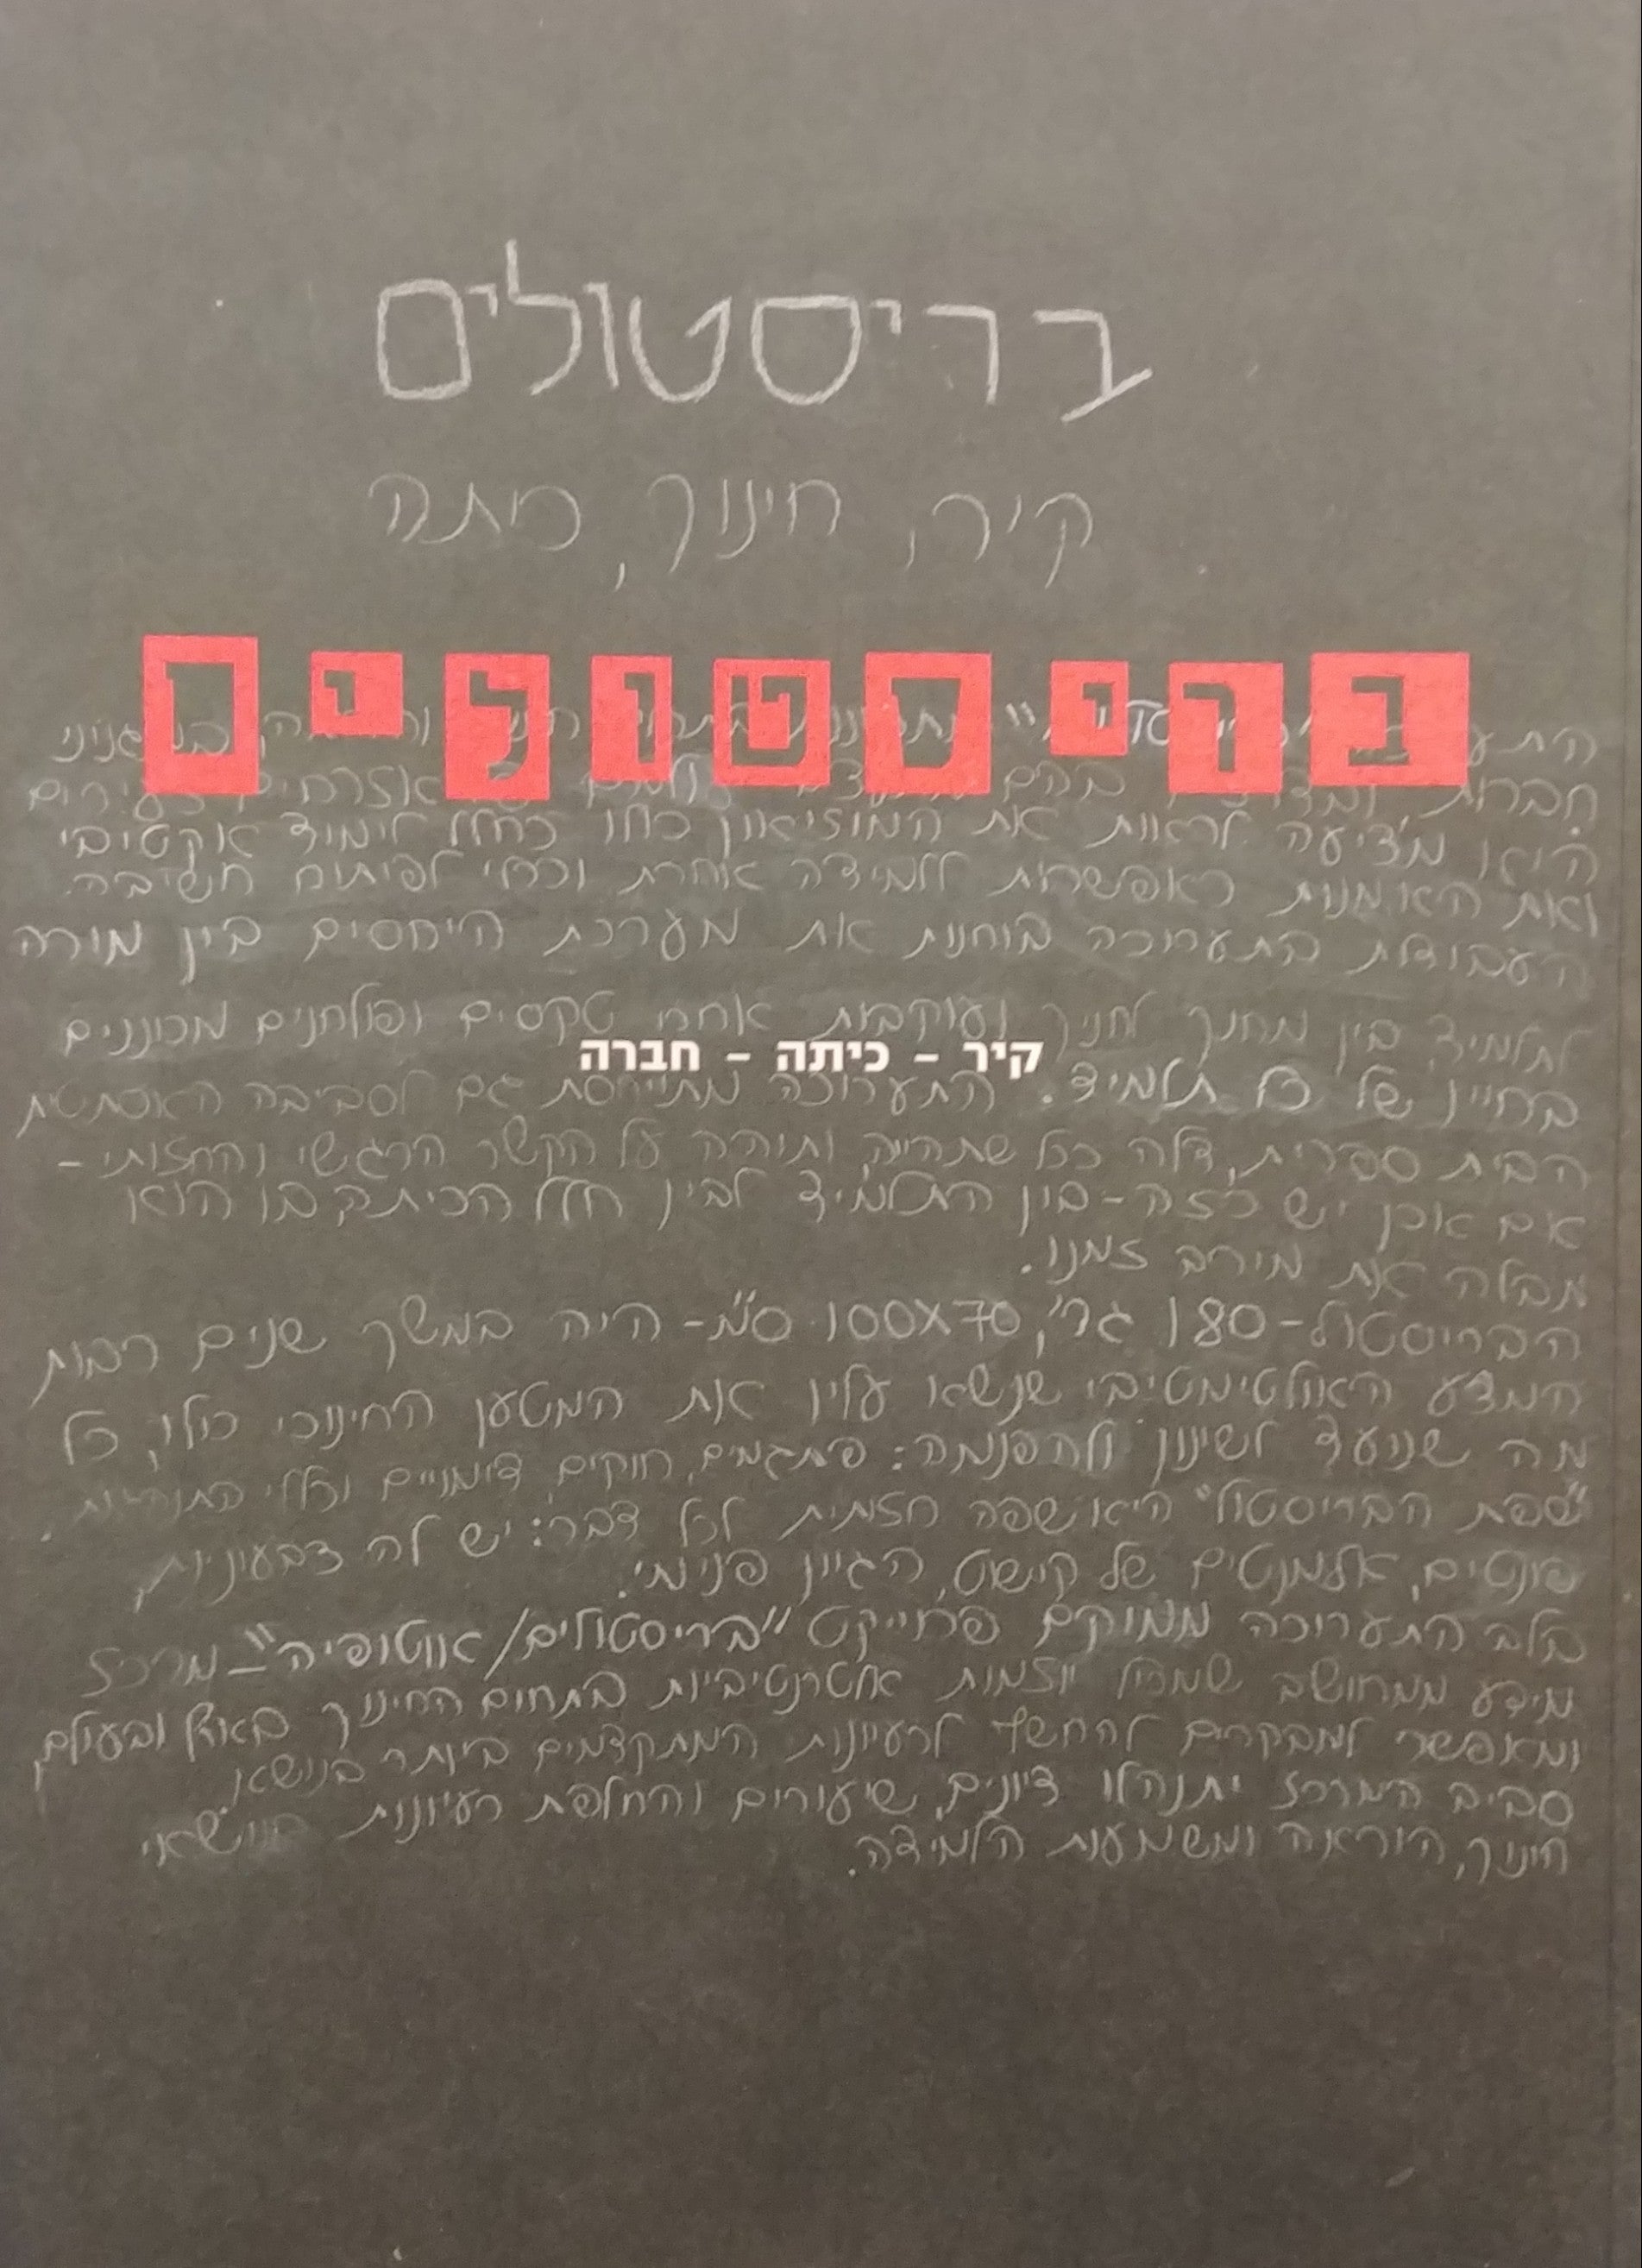 בריסטולים
קיר, חינוך, כתה
בריסטולים
חברות,
היא מציעה לראות את המוזיאון כחלל לימוד אקטיבי
ואת האמנות כאפשרות ללמידה אחרת וככלי לפיתוח חשיבה.
העבודות בתערוכה בוחנות את מערכת היחסים בין מורה
לתלמיד בין מחנך לחניך ועוקבות אחר טקסים ופולחנים מכוננים
קיר - כיתה - חברה
בחייו של כל תלמיד. התערוכה מתייחסת גם לסביבה האסתטית
הבית ספרית, דלה ככל שתהיה, ותוהה על הקשר הרגשי והחזותי -
אם אכן יש כזה - בין התלמיד לבין חלל הכיתה בו הוא
מבלה את מירב זמנו.
הבריסטול - 180 גר', 100X70 ס"מ - היה במשך שנים רבות
המצע האולטימטיבי שנשא עליו את המטען החינוכי כולו, כל
מה שנועד לשינון ולהפנמה: פתגמים, חוקים, דימויים וכללי התנהגות.
"שפת הבריסטול" היא שפה חזותית לכל דבר: יש לה צבעוניות,
פונטים, אלמנטים של קישוט, הגיון פנימי.
בלב התערוכה ממוקם פרוייקט "בריסטולים/אוטופיה" - מרכז
מידע ממחושב שמכיל יוזמות אלטרנטיביות בתחום החינוך בארץ ובעולם
ומאפשר למבקרים להחשף לרעיונות המתקדמים ביותר בנושא.
סביב המרכז יתנהלו דיונים, שיעורים והחלפת רעיונות בנושאי
חינוך, הוראה ומשמעות הלמידה.